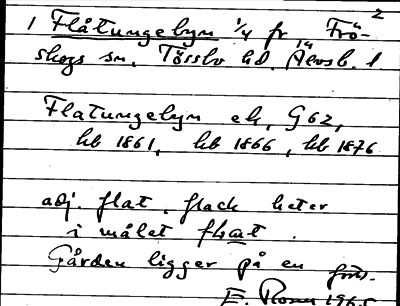 2
1 Flåtungebyn 1/4 fr Frö-
skogs sn. Tössbo hd. Älvsb. l
Flatungebyn ek, G62,
hb 1861, hb 1866, hb 1876
adj. flat, flack heter
i målet flat.
Gården ligger på en forts.
E. Rosén 1965